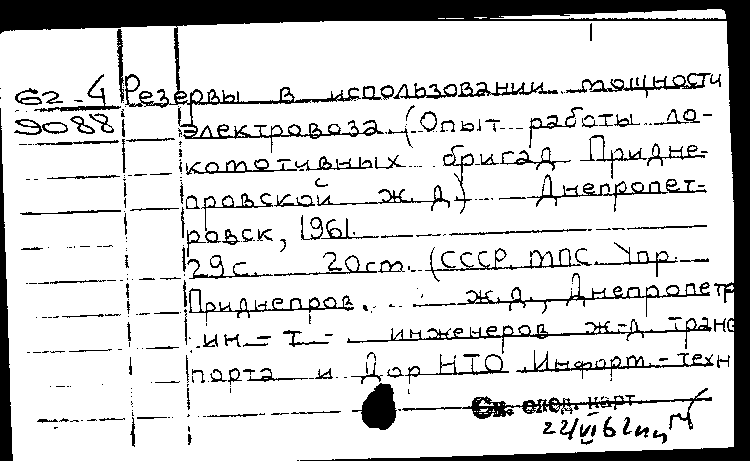 62-4 Резервы в использовании мощности
9088 электровоза. (Опыт работы ло-
комотивных бригад Придне-
провской ж.д.) Днепропет-
ровск, 1961.
29с. 20см. (СССР. МПС. Упр.
Приднепров. ж.д., Днепропетр
ин-т инженеров ж-д. транс
порта и Дор НТО. Информ.-техн
См. след. карт.
22/VI 62